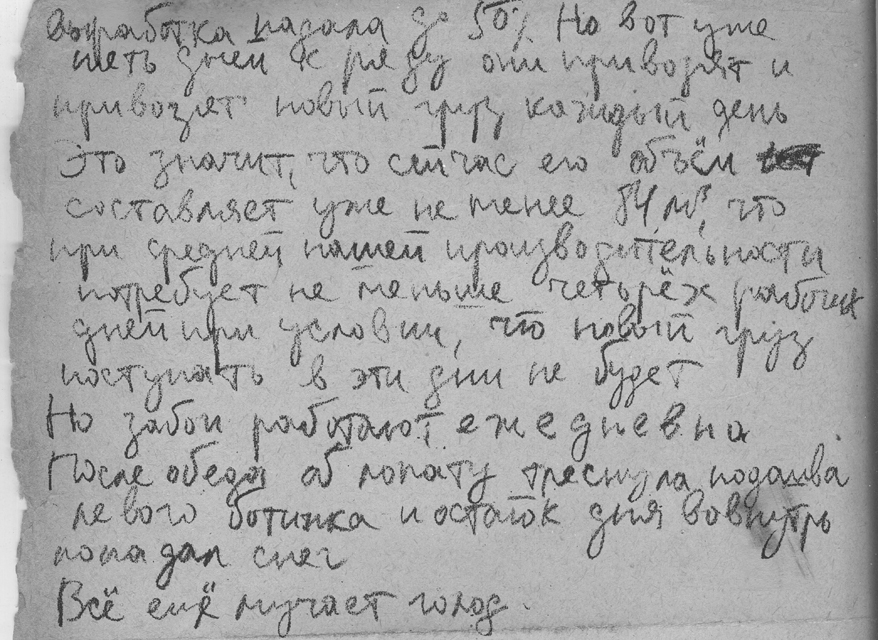 выработка падала до 50% Но вот уже
пять дней к ряду они привозят и
привозят новый груз каждый день
Это значит, что сейчас его объём
составляет уже не менее 84 м³, что
при средней нашей производительности
потребует не меньше четырёх рабочих
дней при условии, что новый груз
поступать в эти дни не будет
Но забои работают ежедневно
После обеда об лопату треснула подошва
левого ботинка и остаток дня вовнутрь
попадал снег
Всё ещё мучает голод.